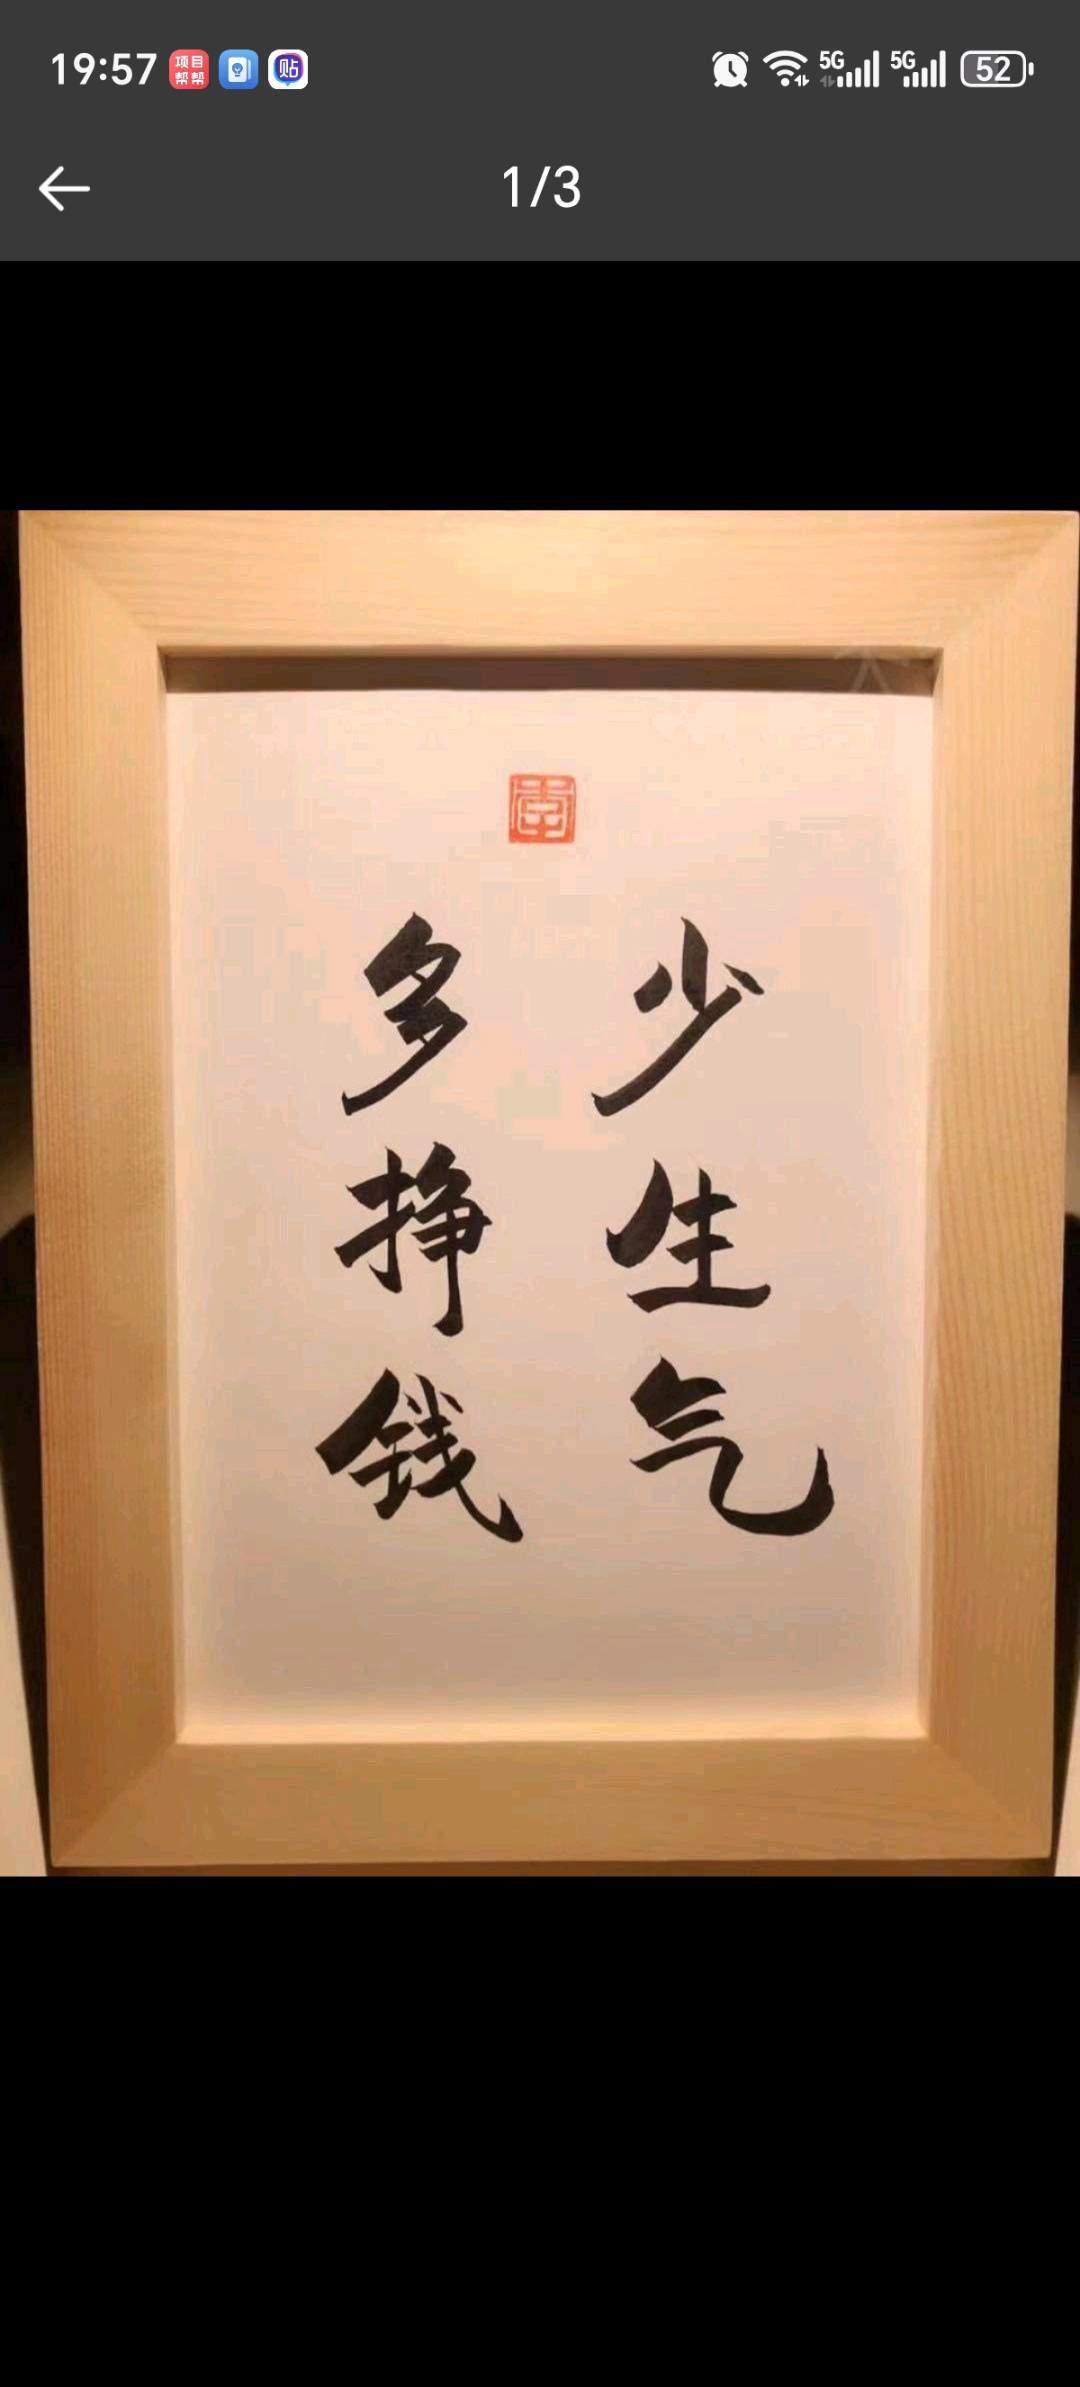 19:57
项目
帮帮
贴
5G
5G
52
1/3
少生气
多挣钱